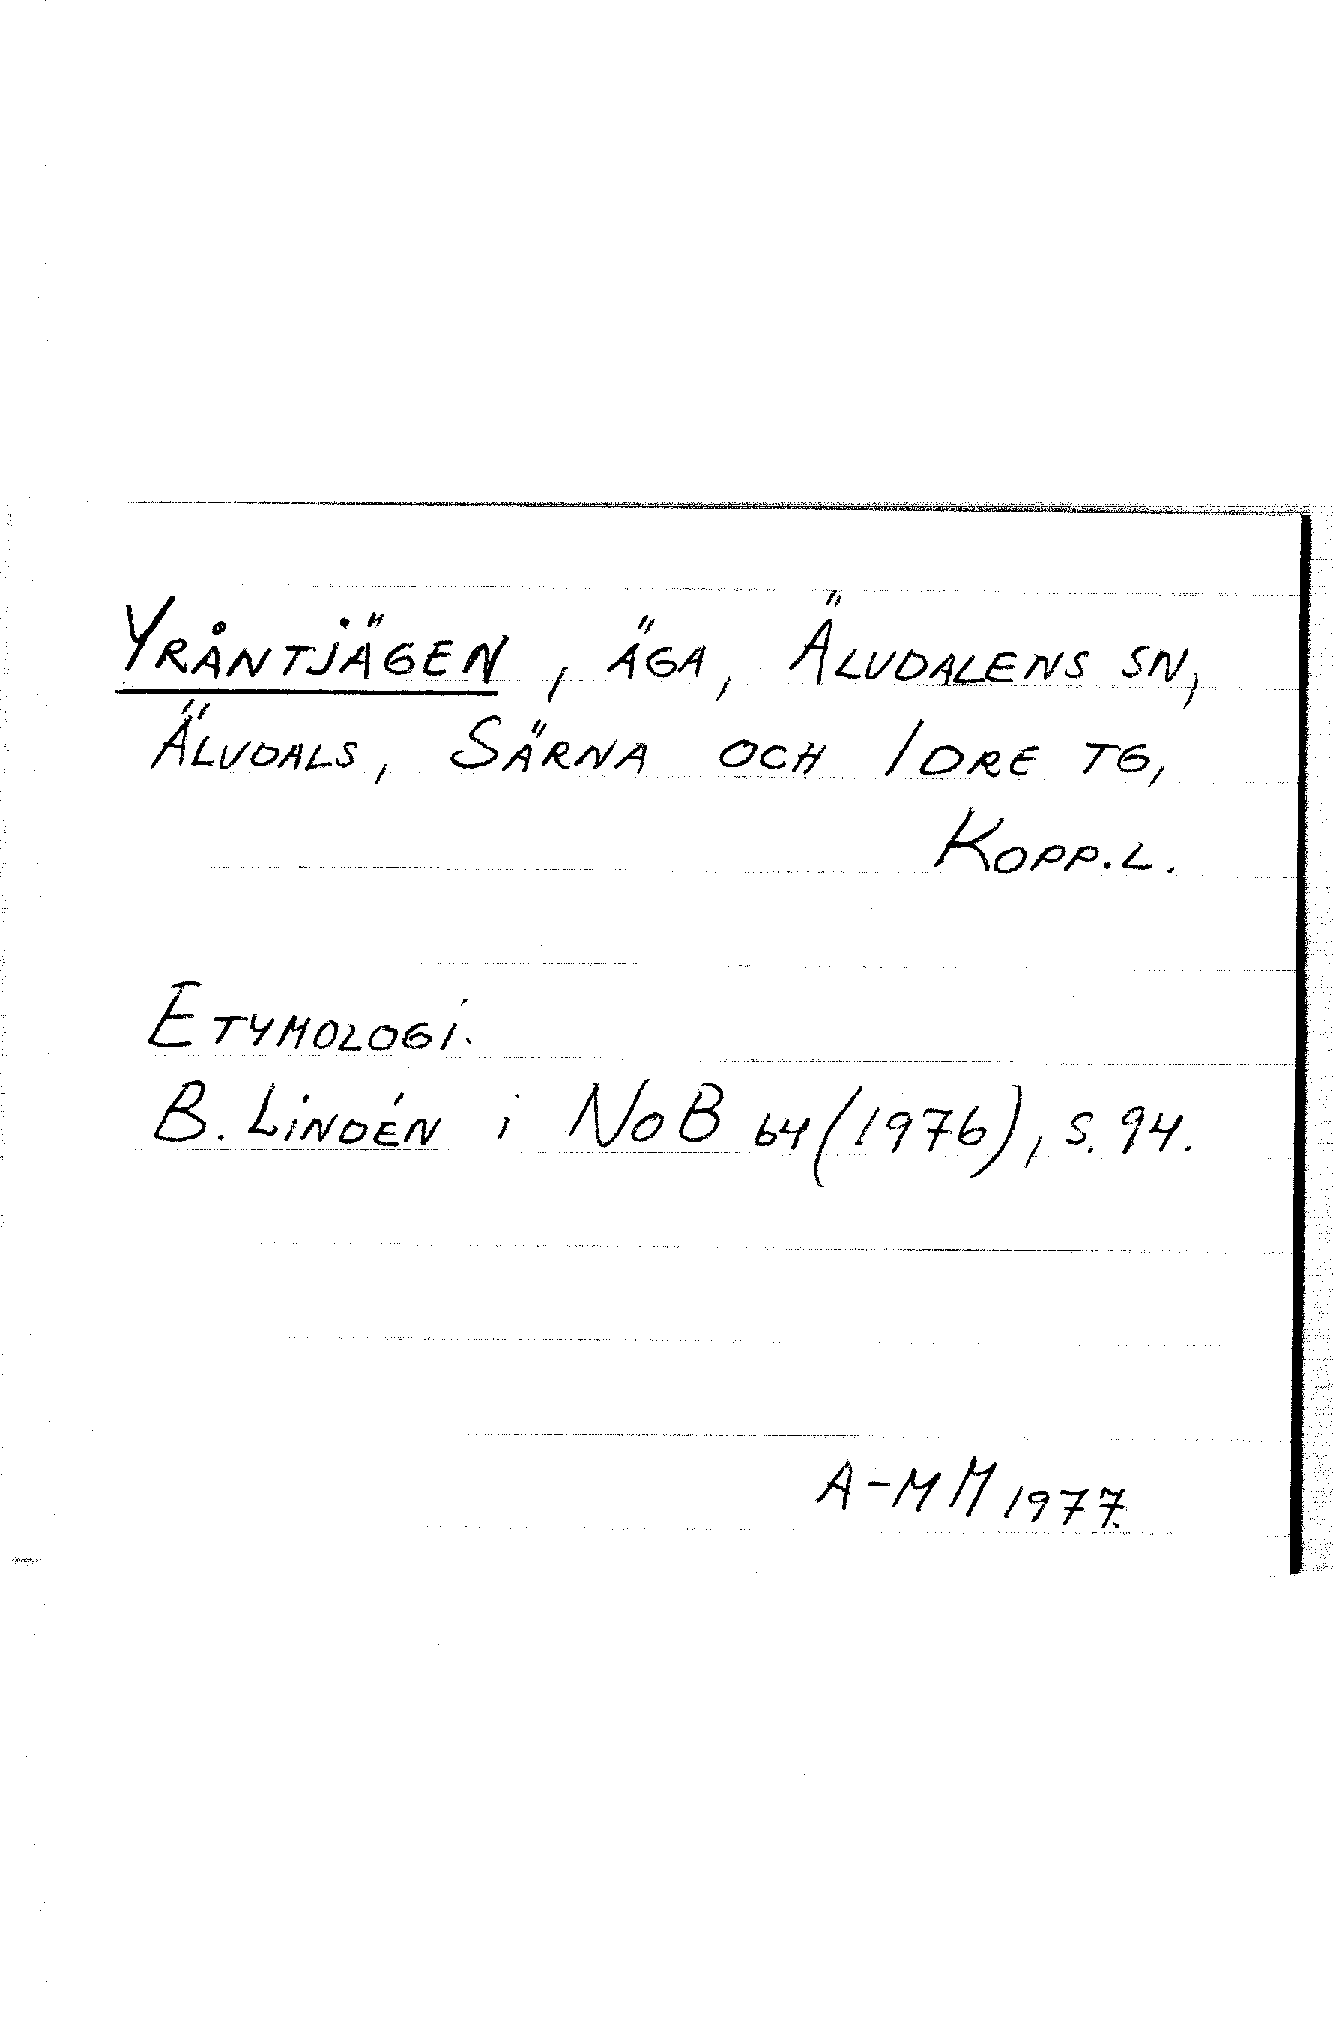 YRÅNTJÄGEN, ÄGA, ÄLVDALENS SN,
ÄLVDALS, SÄRNA OCH IDRE TG,
KOPP.L.
ETYMOLOGI.
B. LINDÉN i NoB 64 (1976), S. 94.
A-MM 1977.